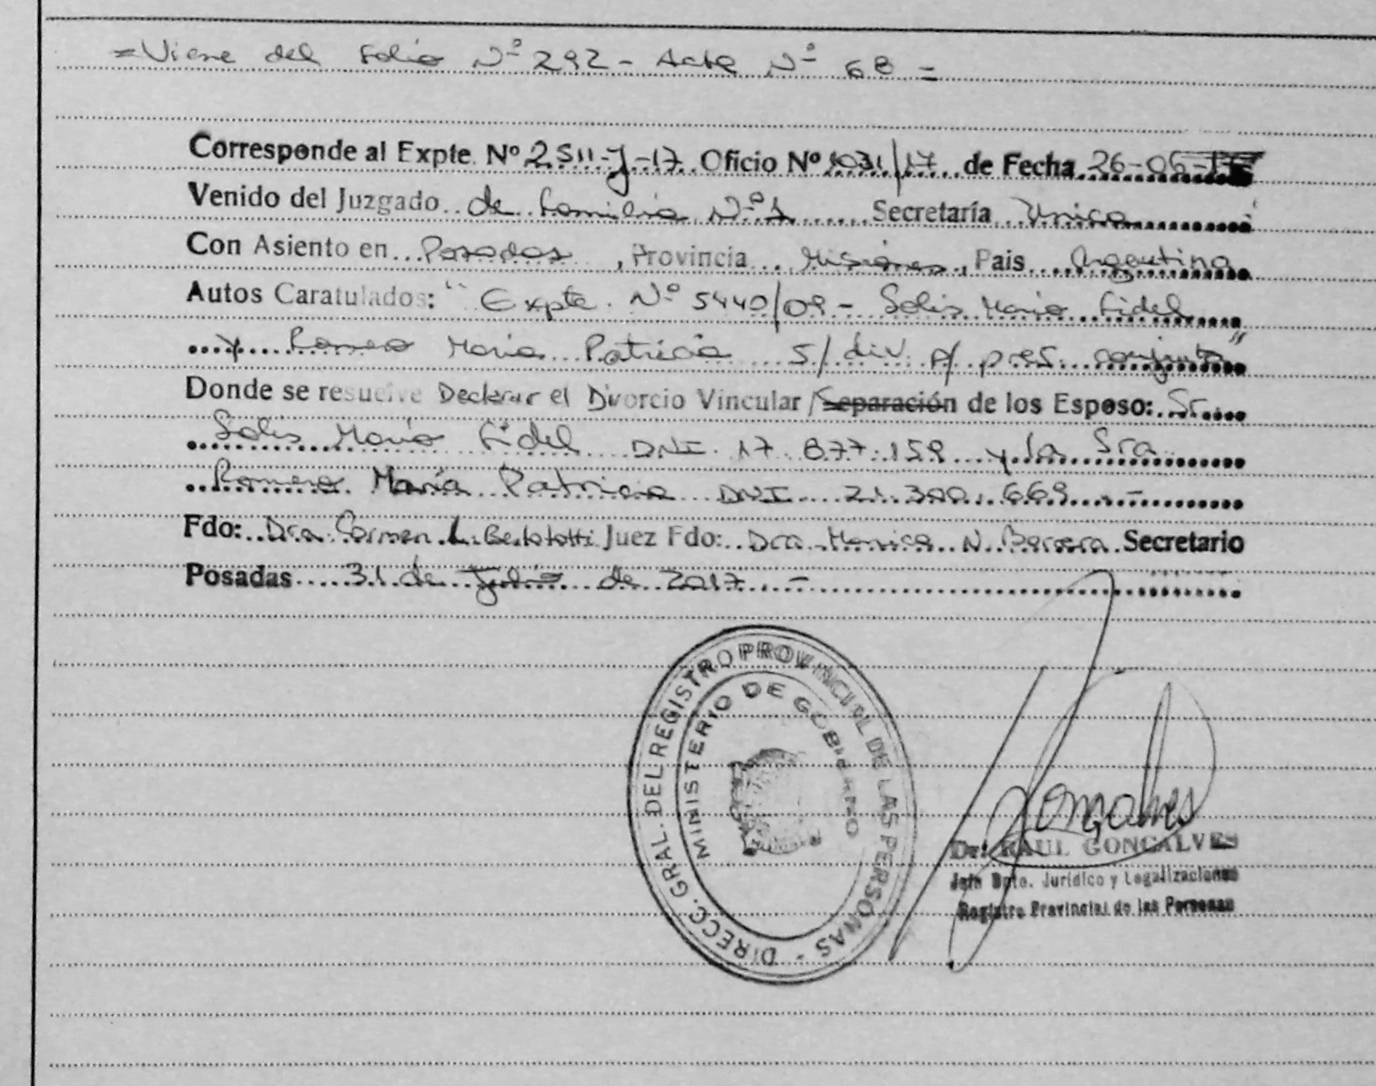 =Viene del Folio Nº 292 - Acta Nº 68 =
Corresponde al Expte. Nº 2511-J-17 Oficio Nº 1031/17 de Fecha 26-06-17
Venido del Juzgado de Familia Nº 1 Secretaría Unica
Con Asiento en Posadas, Provincia Misiones, Pais Argentina
Autos Caratulados: "Expte. Nº 5440/09 - Solis Mario Fidel
y Romero Maria Patricia s/ div. p/ pres. conjunta"
Donde se resuelve Declarar el Divorcio Vincular/Separación de los Esposo: Sr.
Solis Mario Fidel DNI 17.877.159 y la Sra
Romero María Patricia DNI 21.300.669.-
Fdo: Dra. Carmen L. Bertolotti Juez Fdo: Dra. Monica N. Barrera Secretario
Posadas 31 de Julio de 2017.-
DIRECC. GRAL. DEL REGISTRO PROVINCIAL DE LAS PERSONAS -
MINISTERIO DE GOBIERNO
Goncalves
Dr. RAUL GONCALVES
Jefe Dpto. Jurídico y Legalizaciones
Registro Provincial de las Personas